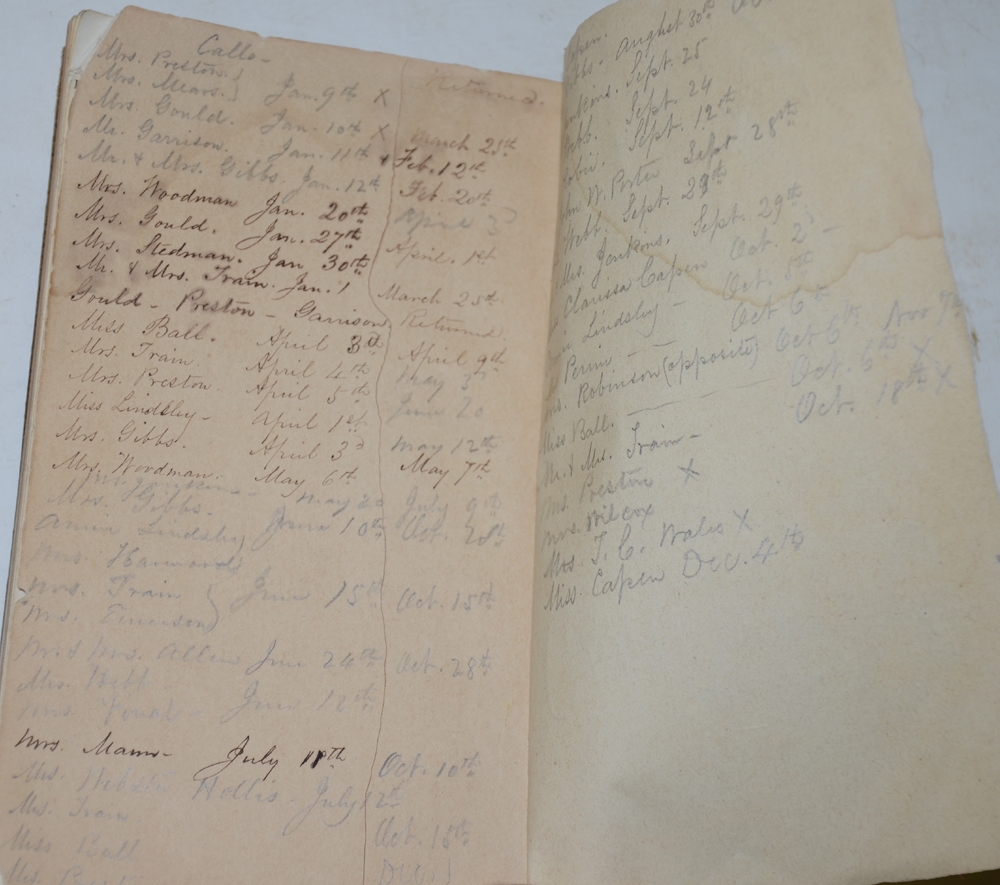 Calls - Returned.
Mrs. Preston }
Mrs. Mears. } Jan. 9th X
Mrs. Gould. Jan. 10th X March 25th
Mr. Garrison. Jan. 11th + Feb. 12th
Mr. & Mrs. Gibbs. Jan. 12th Feb. 20th
Mrs. Woodman Jan. 20th April 3d
Mrs. Gould. Jan. 27th April. 1st
Mrs. Stedman. Jan 30th
Mr. & Mrs. Train. Jan. 1 March 25th
Gould - Preston - Garrison. Returned
Miss Ball. April 3d April 9th
Mrs. Train. April 4th May 3d
Mrs. Preston April 5th June 20
Miss Lindsley - April 1st
Mrs. Gibbs. April 3d May 12th
Mrs. Woodman. May 6th May 7th
May 20 July 9th
Mrs. Gibbs. June 10th Oct. 28th
Anna Lindsley
Mrs. Hanward
Mrs. Train } June 15th Oct. 15th
Mrs.
Mr & Mrs. Allen June 24th Oct. 28th
Mrs. Webb -
Mrs. June 12th
Mrs. Mann - July 11th Oct. 10th
Mrs. Webster Hollis. July 12th
Mrs. Train Oct. 18th
Miss Ball
Mrs.
August 30th
Sept. 25
Sept. 24
Sept. 12th
W. Porter Sept 28th
Webb. Sept. 29th
Mrs. Jenkins. Sept. 29th
Clarissa Capen Oct. 2d -
Lindsley - Oct. 5th
Perrin - Oct 6th
Robinson (opposite) Oct 6th Nov 7th
Miss Ball. Oct. 6th X
Mr. & Mrs. Train - Oct. 18th X
Mrs. Preston X
Mrs. Wilcox
Mrs. T. C. Wales X
Miss. Capen Dec. 4th